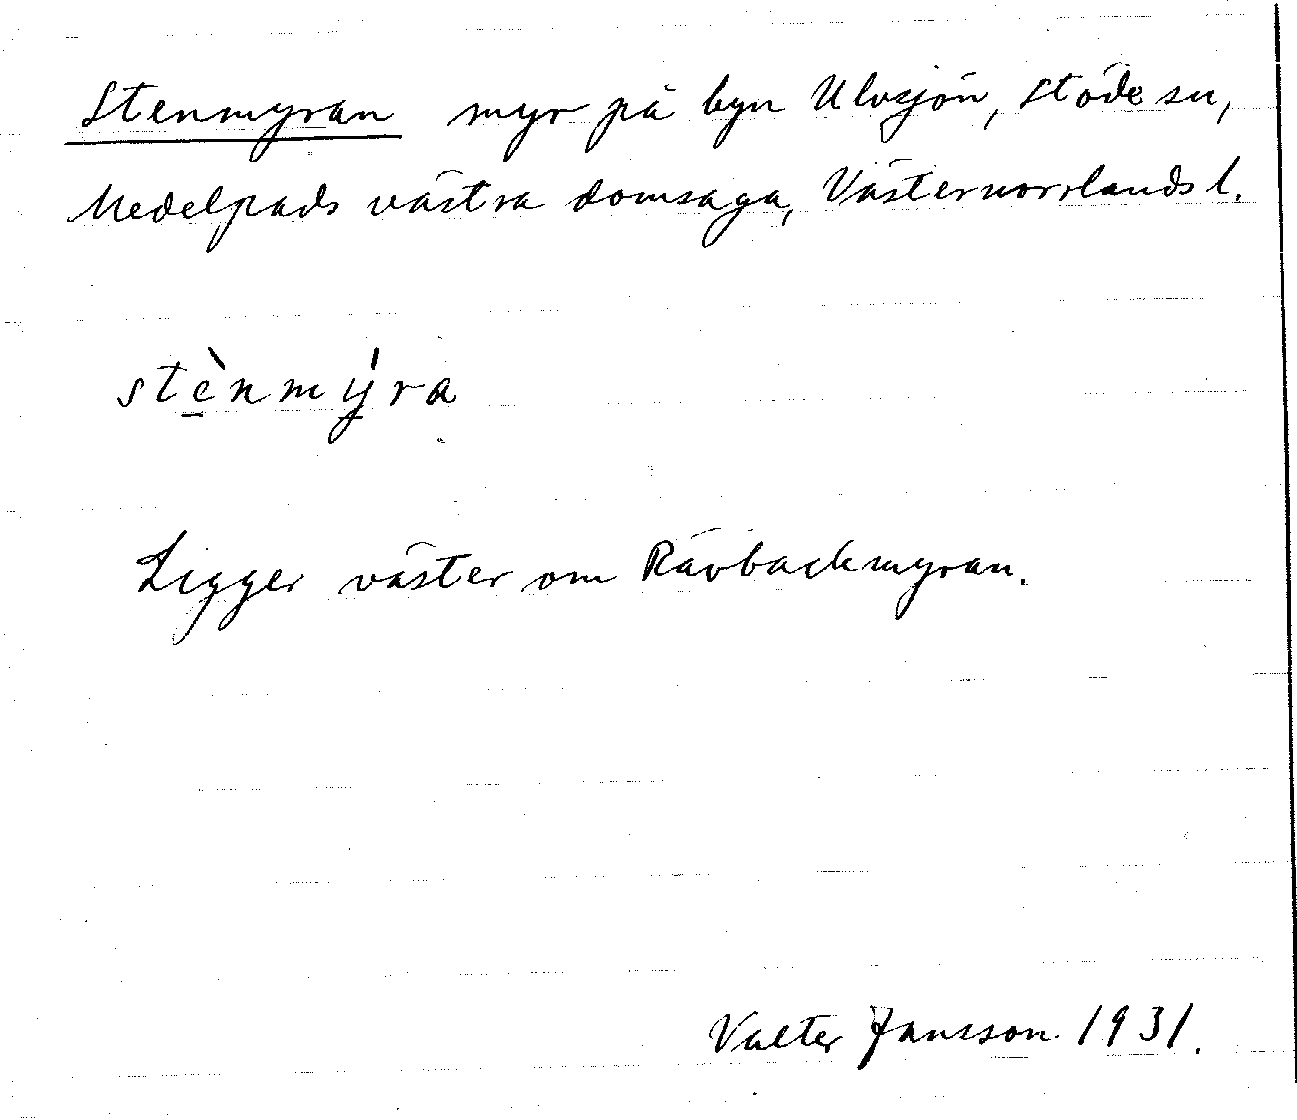 Stenmyran myr på byn Ulvsjön, Stöde sn,
Medelpads västra domsaga, Västernorrlands l.
stè̲nmý̲ra
Ligger väster om Rävbackmyran.
Valter Jansson 1931.